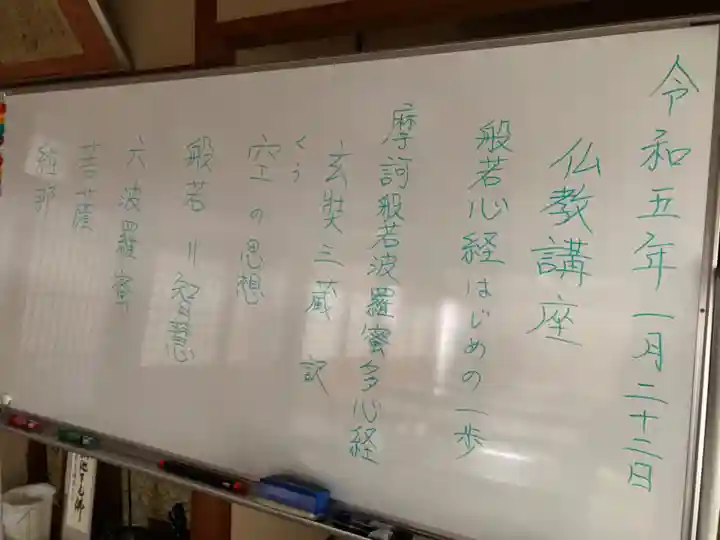 令和五年一月二十二日
仏教講座
般若心経はじめの一歩
摩訶般若波羅蜜多心経
玄奘三蔵 訳
くう
空の思想
般若＝智慧
六波羅蜜
菩薩
経部